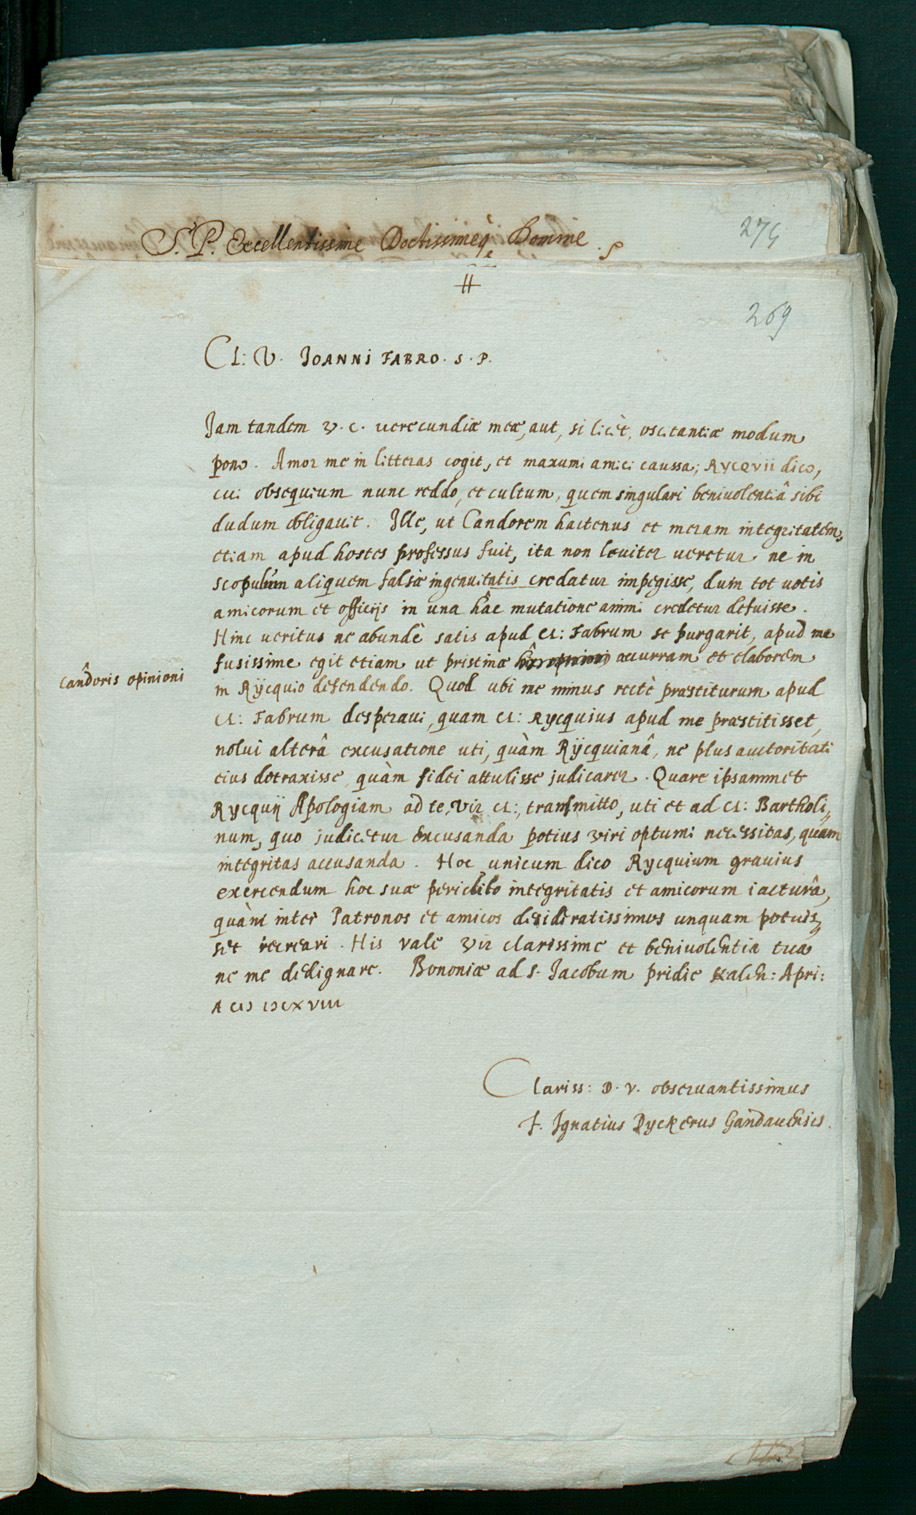 S. P. Excellentissime Doctissimeq; Domine.
275
#
269
Cl: V. Joanni Fabro. S. P.
Jam tandem V. C. verecundiæ meæ, aut, si licet, oscitantiæ modum
pono. Amor me in litteras cogit, et maxumi amici caussa; Rycquii dico,
cui obsequium nunc reddo, et cultum, quem singulari benivolentiâ sibi
dudum obligavit. Ille, ut Candorem hactenus et meram integritatem,
etiam apud hostes professus fuit, ita non leviter veretur ne in
scopulum aliquem falsæ ingenuitatis credatur impegisse, dum tot votis
amicorum et officijs in una hâc mutatione animi credetur defuisse.
Hinc veritus ne abundè satis apud Cl: Fabrum se purgarit, apud me
fusissime egit etiam ut pristinæ accurram et elaborem
candoris opinioni
in Rÿcquio defendendo. Quod ubi me minus rectè præstiturum apud
Cl: Fabrum desperavi, quam Cl: Rycquius apud me præstitisset,
nolui alterâ excusatione uti, quàm Rÿcquianâ, ne plus auctoritati
eius detraxisse, quàm fidei attulisse judicarer. Quare ipsammet
Rycquij Apologiam ad te, Vir Cl:, transmitto, uti et ad Cl: Bartholi,,
num, quo judicetur excusanda potius viri optumi necessitas, quam
integritas accusanda. Hoc unicum dico Rycquium gravius
exercendum hoc suæ periclito integritatis et amicorum iacturâ,
quàm inter Patronos et amicos desideratissimos unquam potuis,,
set recreari. His vale Vir clarissime et benivolentia tua
ne me dedignare. Bononiæ ad S. Jacobum pridie Kalen: Apri:
A CIↃ IↃCXVIII
Clariss: D. V. observantissimus
F. Ignatius Dyckerus Gandavensis.